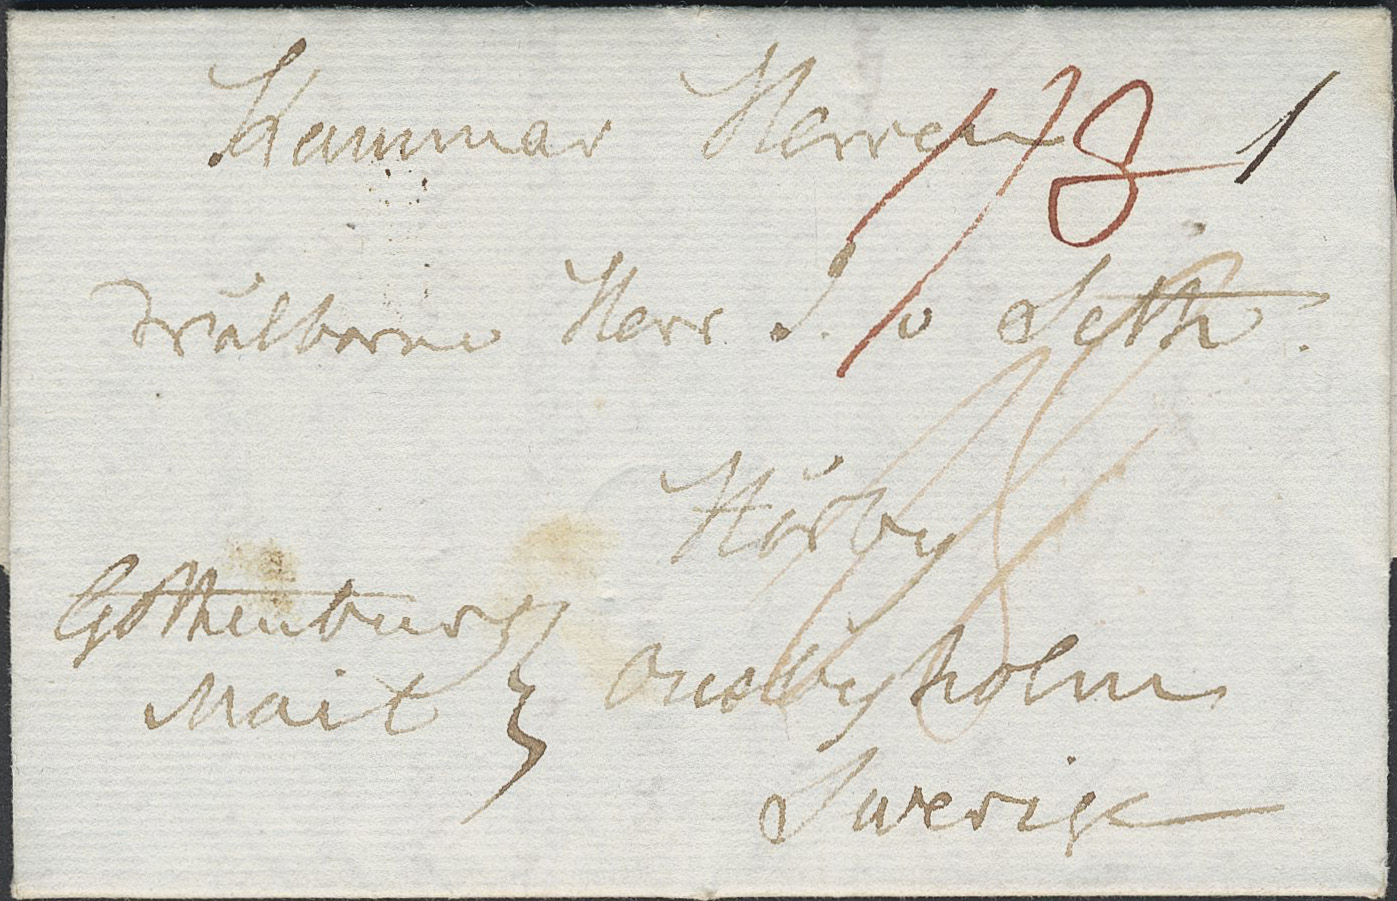 Kammar Herren
Wälborne Herr J. v Seth.
Hörby
Gothenburg
Mail
Ousbyholm
Swerige
1